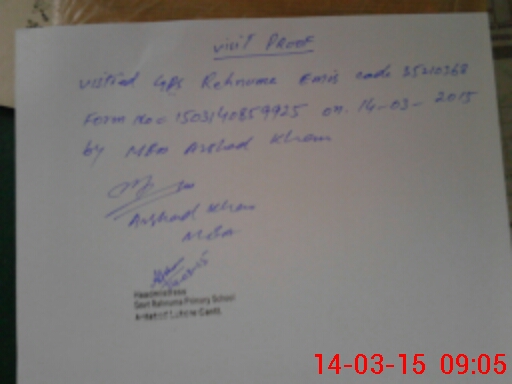 visit PROOF
visited GPS Rehnuma Emis code 35210368
Form No: 1503140859925 on. 14-03-2015
by MEA Arshad Khan
Arshad Khan
MEA
Headmistress
Govt Rehnuma Primary School
Lahore Cantt.
14-03-15 09:05